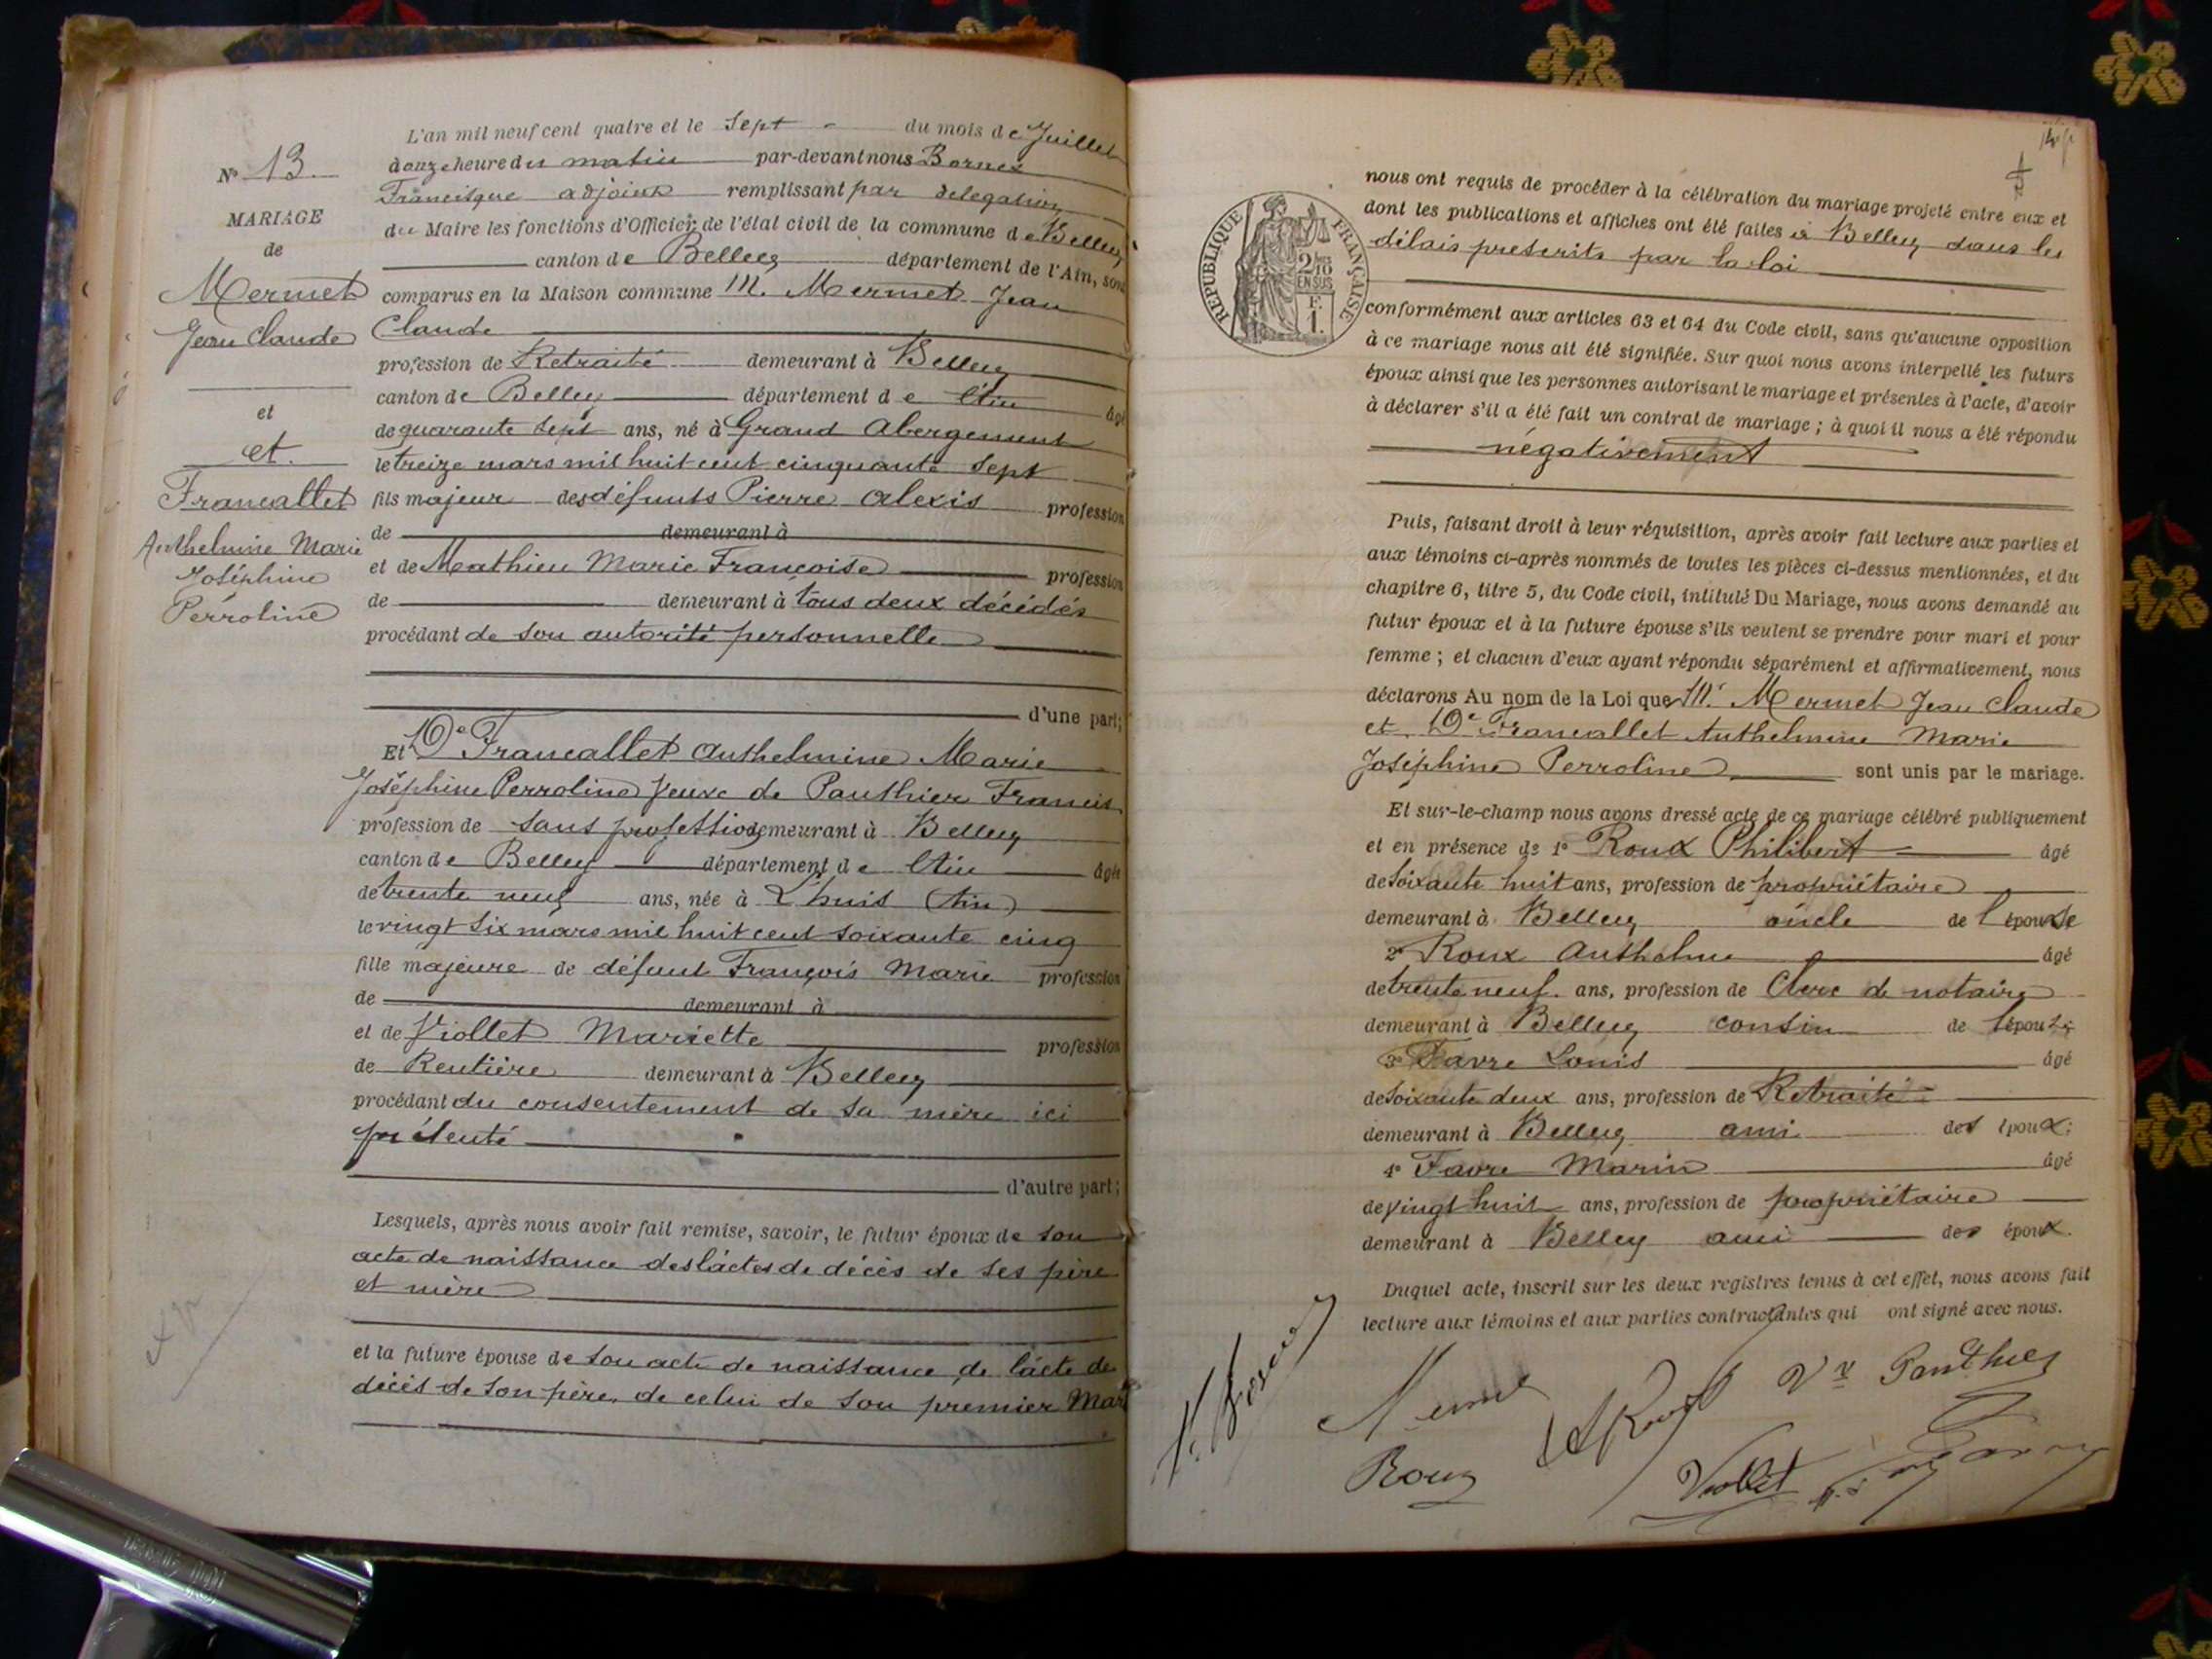 L'an mil neuf cent quatre et le Sept du mois de Juillet
à onze heure du matin par-devant nous Bornex
Francisque adjoint remplissant par delegation
du Maire les fonctions d'Officier de l'état civil de la commune de Belley
canton de Belley département de l'Ain, sont
comparus en la Maison commune M. Mermet Jean
Claude
profession de Retraité demeurant à Belley
canton de Belley département de l'Ain âgé
de quarante sept ans, né à Grand Abergement
le treize mars mil huit cent cinquante sept
fils majeur des défunts Pierre Alexis profession
de demeurant à
et de Mathieu Marie Françoise profession
de demeurant à tous deux décédés
procédant de son autorité personnelle
d'une part;
Et De Francallet Anthelmine Marie
Joséphine Perroline Veuve de Panthier Francis
profession de sans profession demeurant à Belley
canton de Belley département de l'Ain âgée
de trente neuf ans, née à Lhuis (Ain)
le vingt six mars mil huit cent soixante cinq
fille majeure de défunt François Marie profession
de demeurant à
et de Viollet Mariette profession
de Rentière demeurant à Belley
procédant du consentement de sa mère ici
présente
d'autre part;
Lesquels, après nous avoir fait remise, savoir, le futur époux de son
acte de naissance des actes de décès de ses père
et mère
et la future épouse de son acte de naissance de l'acte de
décès de son père, de celui de son premier Mari
No 13
MARIAGE
de
Mermet
Jean Claude
et
et
Francallet
Anthelmine Marie
Joséphine
Perroline
nous ont requis de procéder à la célébration du mariage projeté entre eux et
dont les publications et affiches ont été faites à Belley dans les
délais prescrits par la loi
RÉPUBLIQUE FRANÇAISE
2/10
EN SUS
F.
1.
conformément aux articles 63 et 64 du Code civil, sans qu'aucune opposition
à ce mariage nous ait été signifiée. Sur quoi nous avons interpellé les futurs
époux ainsi que les personnes autorisant le mariage et présentes à l'acte, d'avoir
à déclarer s'il a été fait un contrat de mariage ; à quoi il nous a été répondu
négativement
Puis, faisant droit à leur réquisition, après avoir fait lecture aux parties et
aux témoins ci-après nommés de toutes les pièces ci-dessus mentionnées, et du
chapitre 6, titre 5, du Code civil, intitulé Du Mariage, nous avons demandé au
futur époux et à la future épouse s'ils veulent se prendre pour mari et pour
femme ; et chacun d'eux ayant répondu séparément et affirmativement, nous
déclarons Au nom de la Loi que Mr Mermet Jean Claude
et De Francallet Anthelmine Marie
Joséphine Perroline sont unis par le mariage.
Et sur-le-champ nous avons dressé acte de ce mariage célébré publiquement
et en présence de 1° Roux Philibert âgé
de soixante huit ans, profession de propriétaire
demeurant à Belley oncle de l'épouse
2° Roux Anthelme âgé
de trente neuf ans, profession de Clerc de notaire
demeurant à Belley cousin de l'épouse
3° Favre Louis âgé
de soixante deux ans, profession de Retraité
demeurant à Belley ami des époux;
4° Favre Marin âgé
de vingt huit ans, profession de propriétaire
demeurant à Belley ami des époux.
Duquel acte, inscrit sur les deux registres tenus à cet effet, nous avons fait
lecture aux témoins et aux parties contractantes qui ont signé avec nous.
Vve Panthier
Roux
Viollet